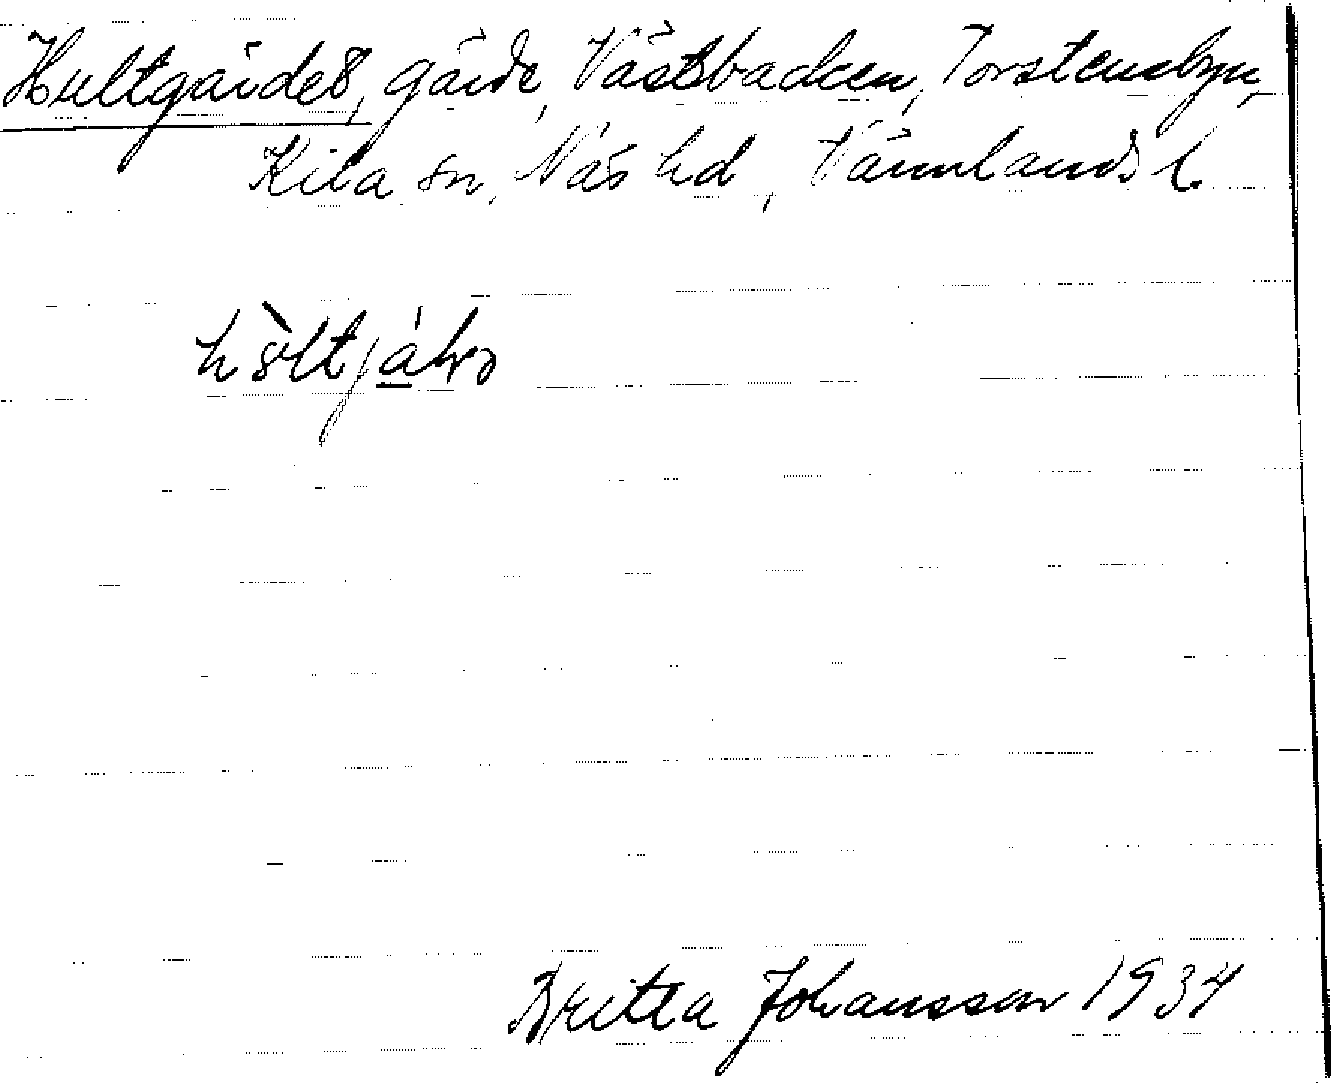 Hultgärdet, gärde, Västbacken, Torstensbyn,
Kila sn, Näs hd, Värmlands l.
Britta Johansson 1934